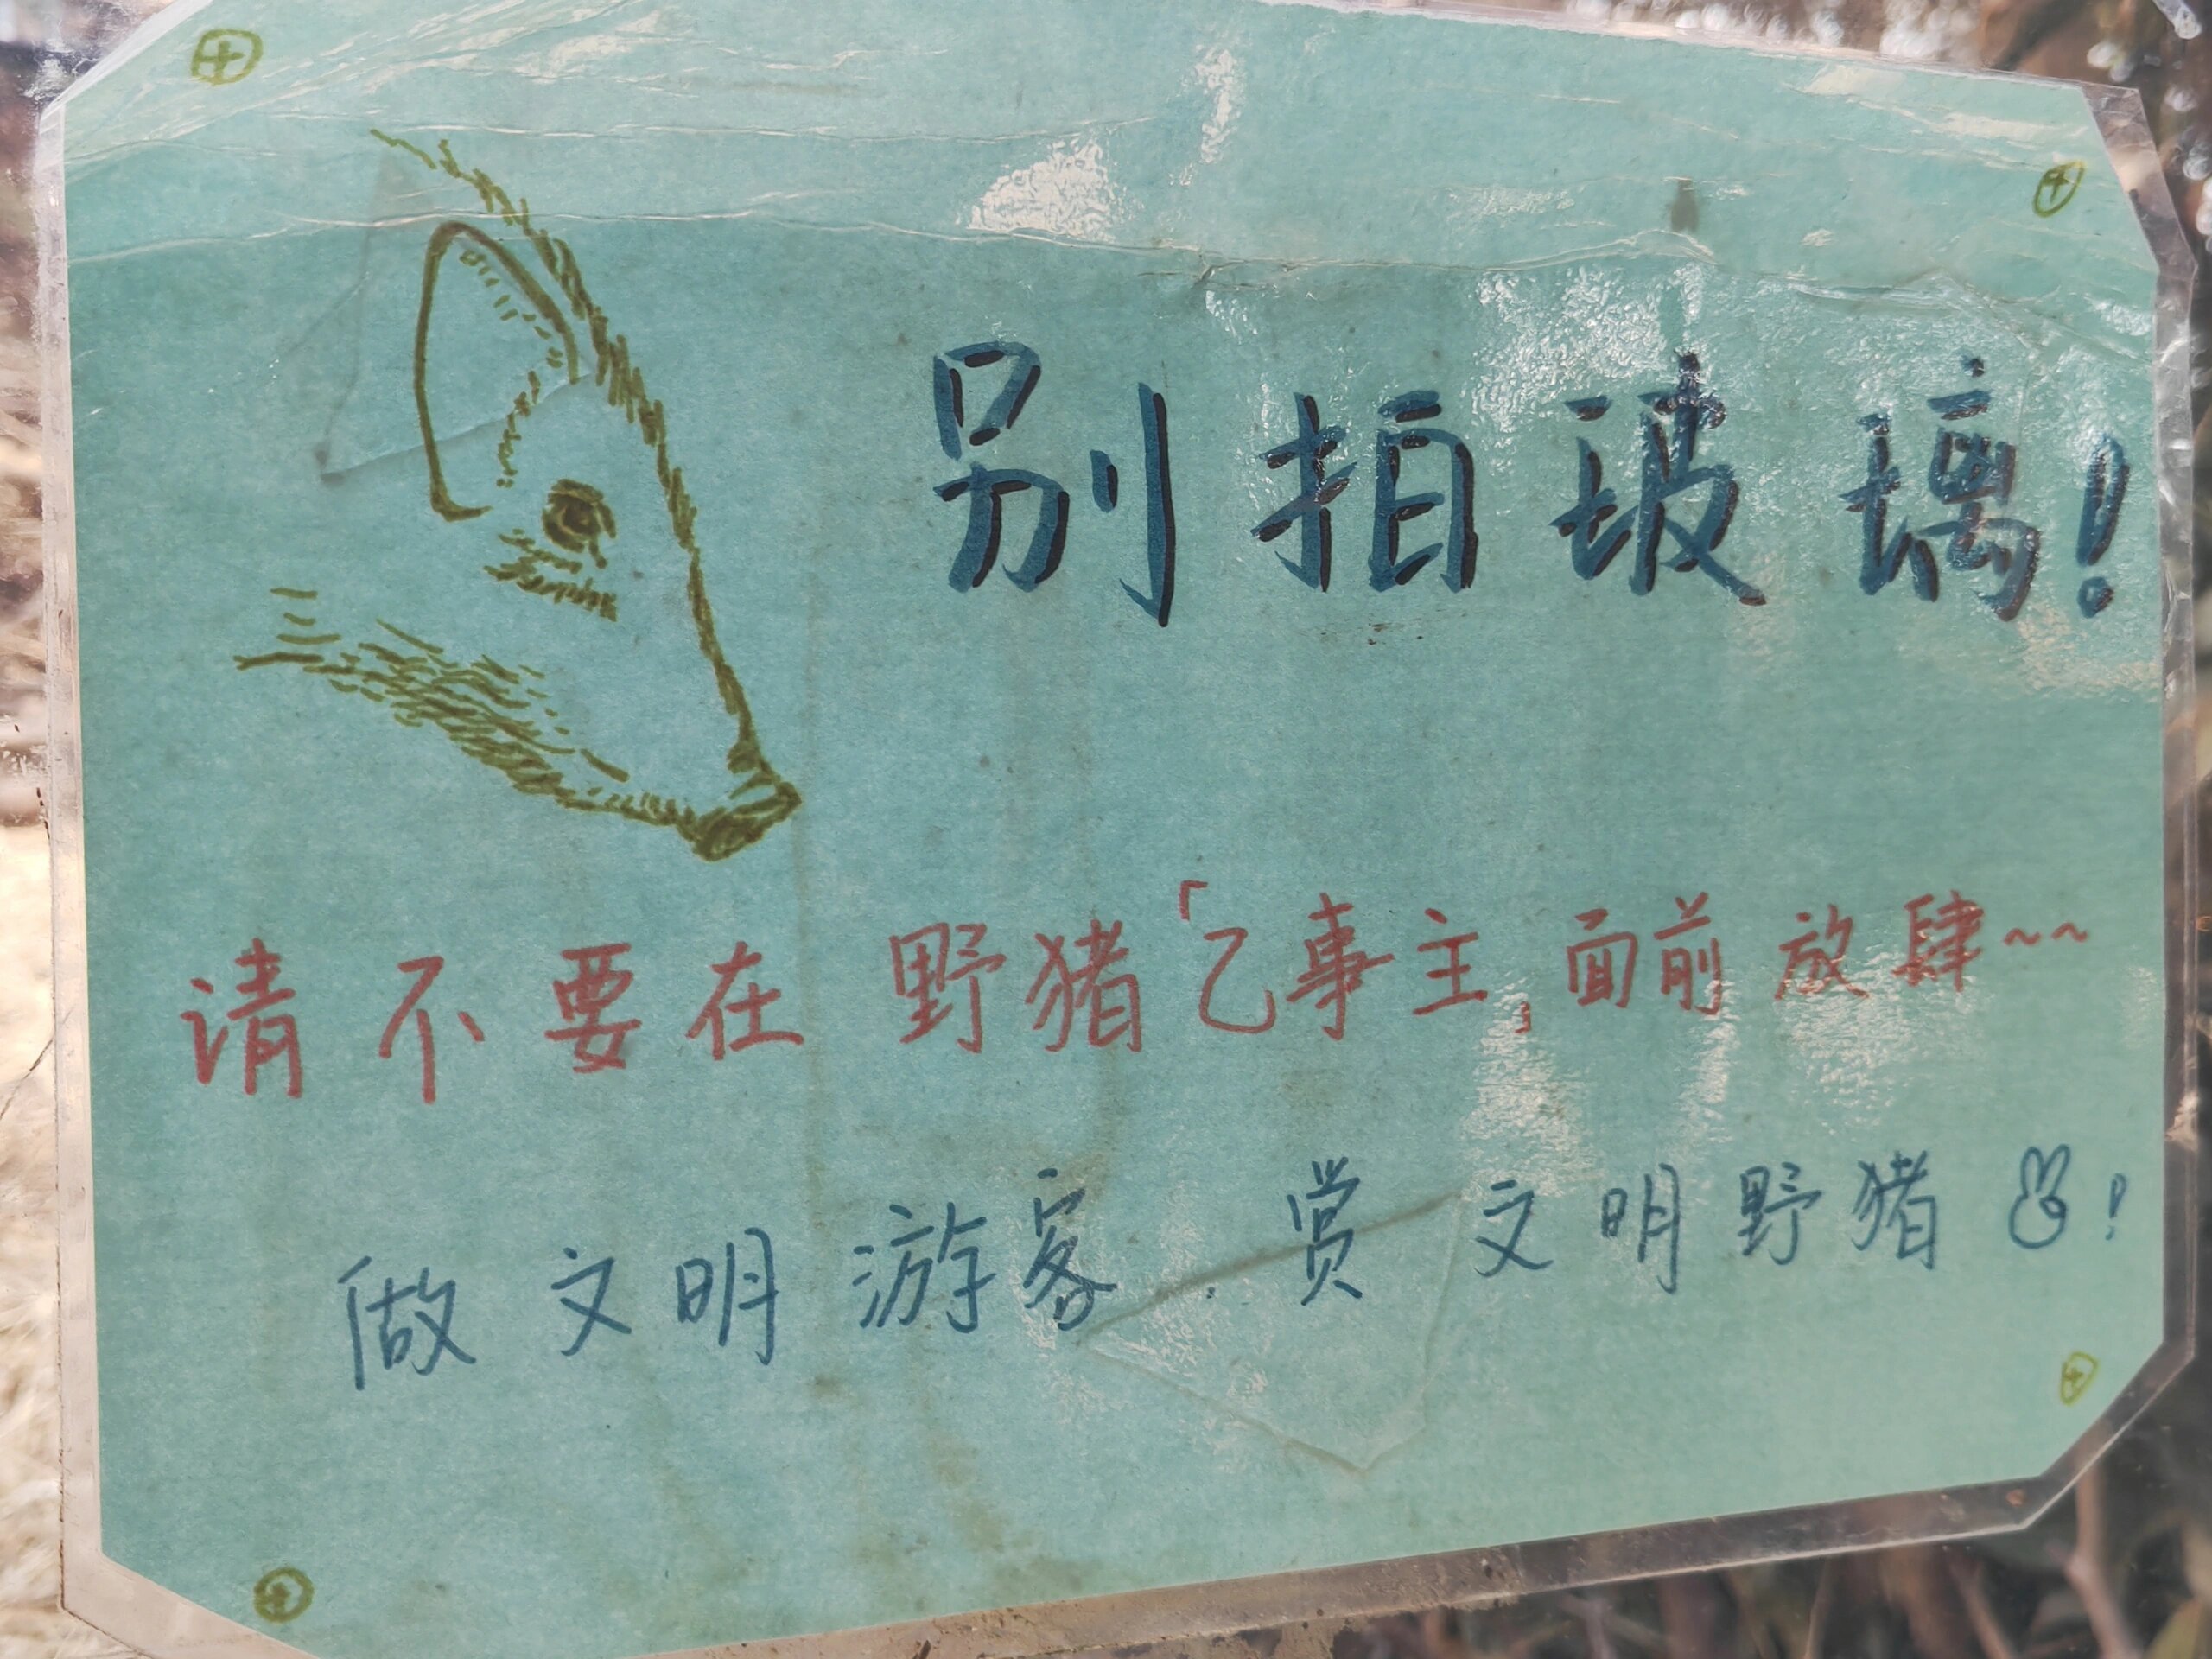 别拍玻璃!
请不要在野猪「乙事主」面前放肆~~
做文明游客.赏文明野猪!